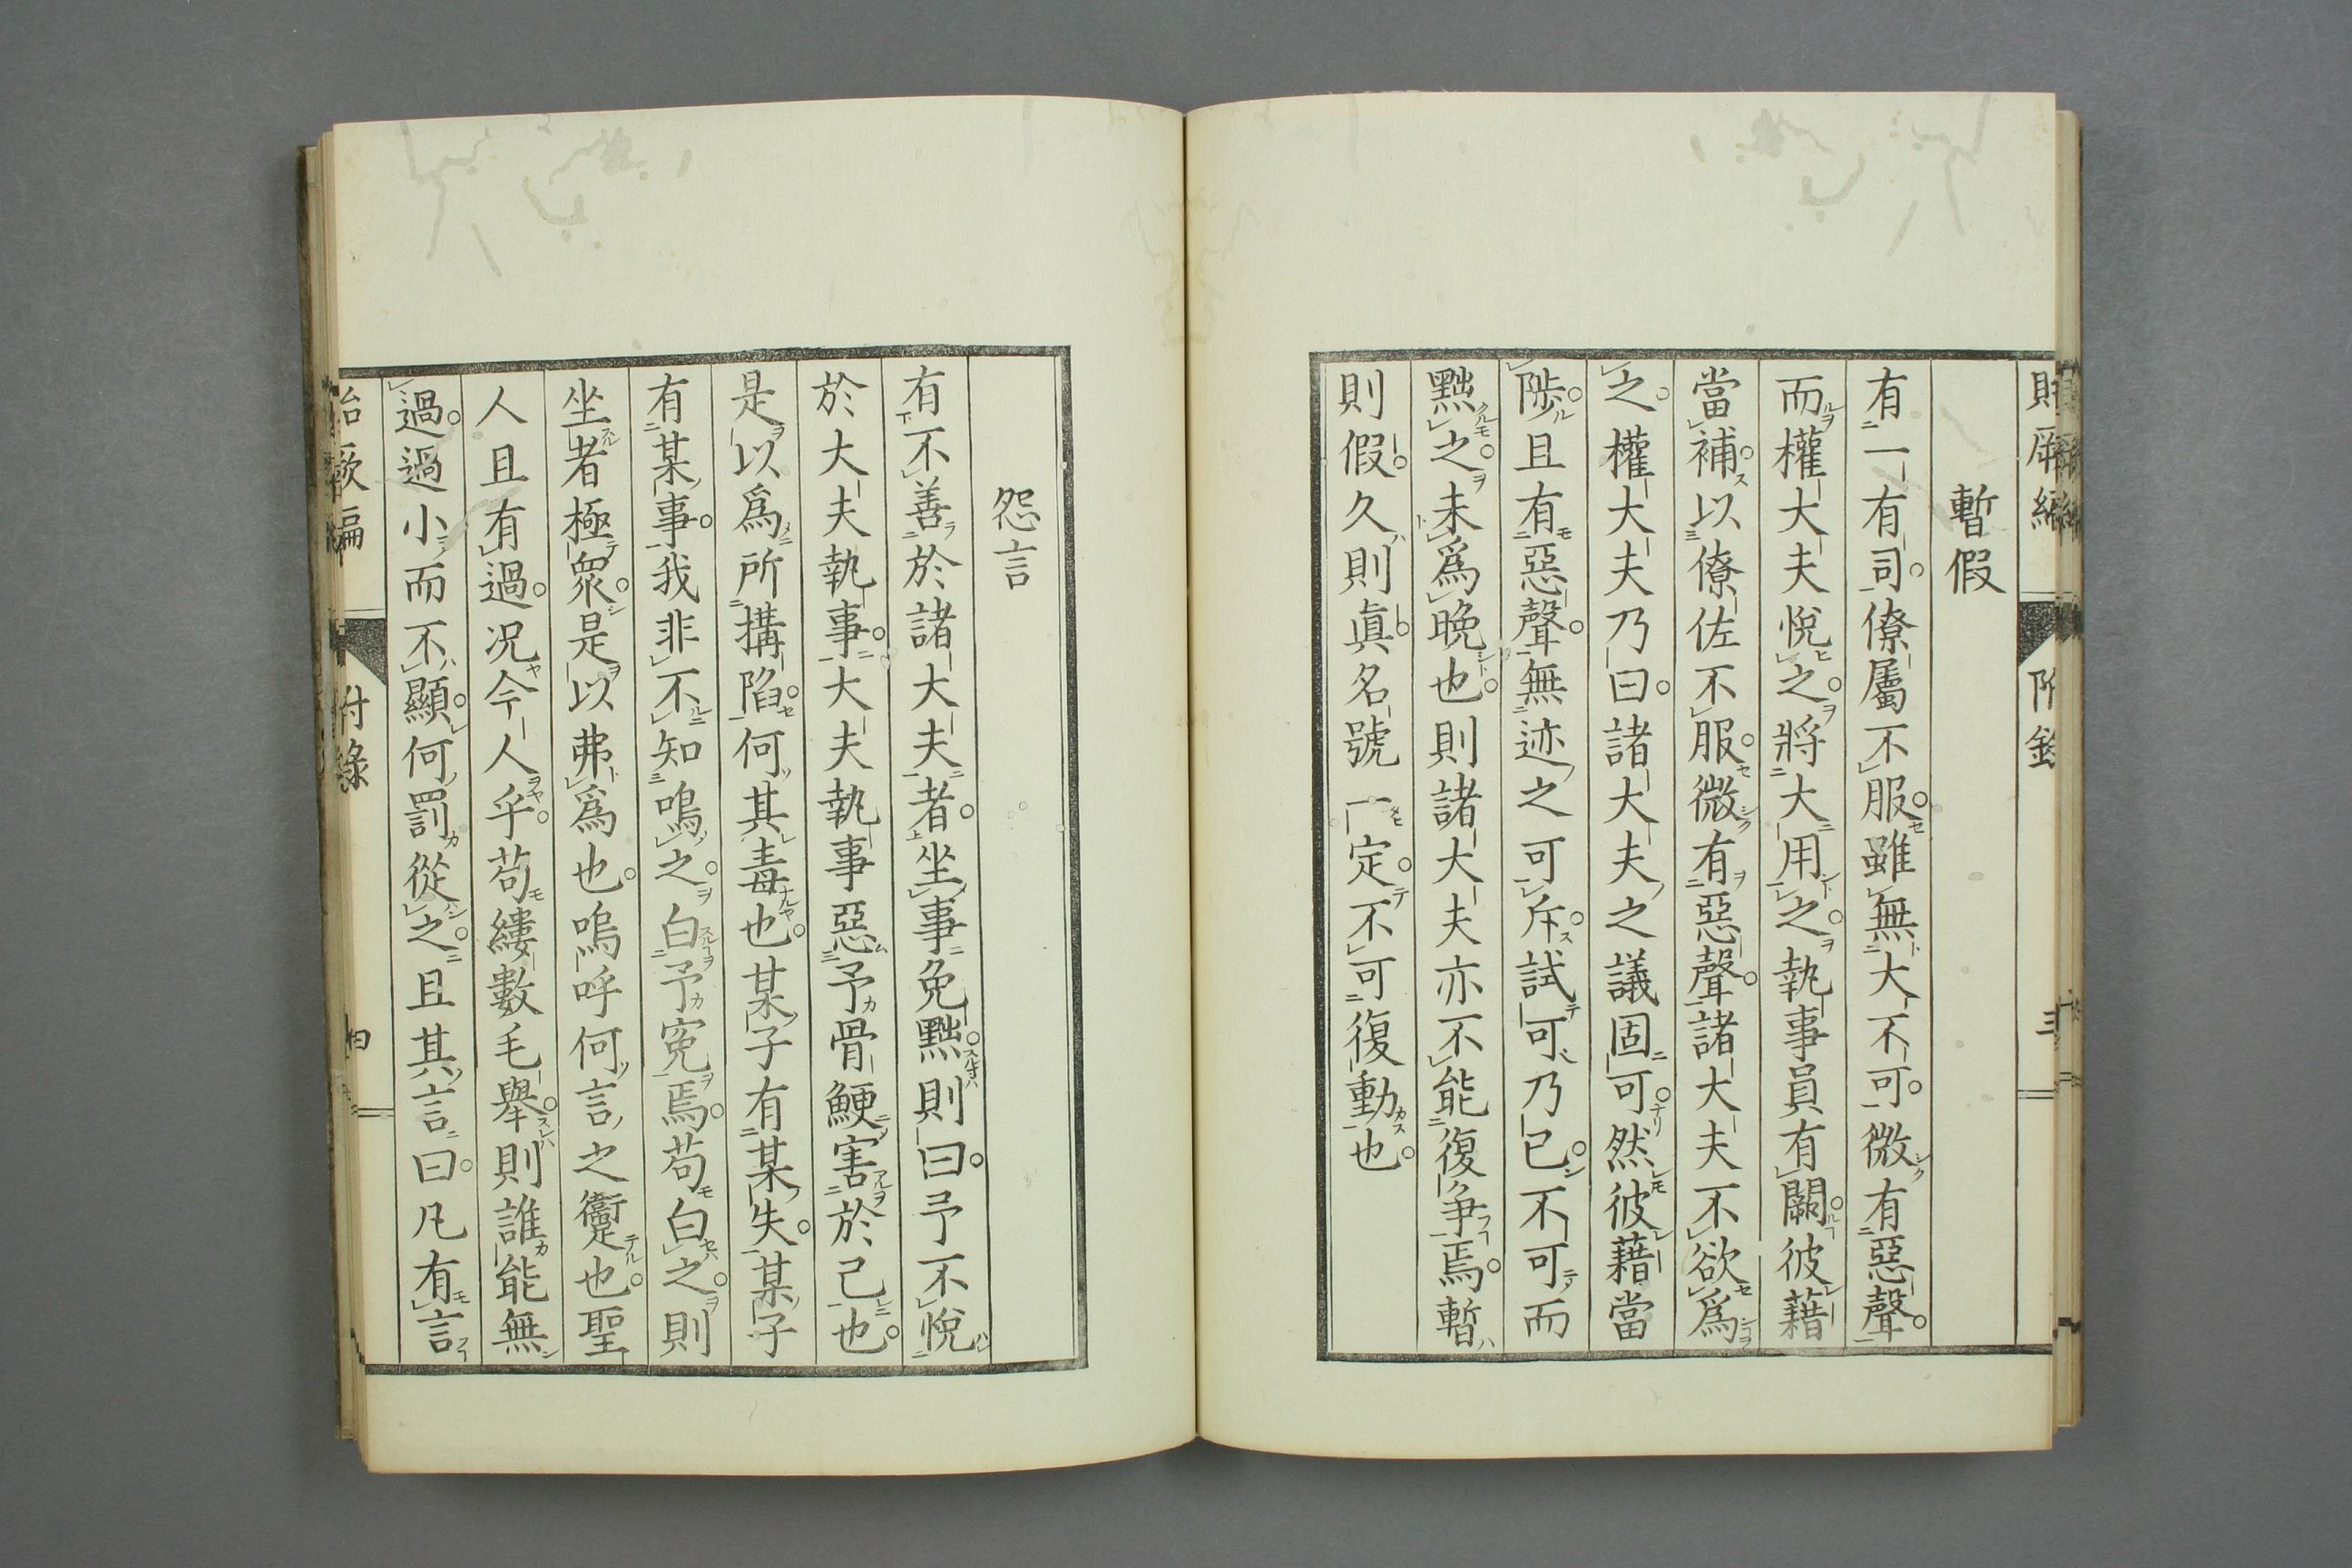 暫假
有一有司僚屬不服雖無大不可微有惡聲
而權大夫悅之將大用之執事員有闕彼藉
當補以僚佐不服微有惡聲諸大夫不欲爲
之權大夫乃曰諸大夫之議固可然彼藉當
陟且有惡聲無迹之可斥試可乃已不可而
黜之未爲晚也則諸大夫亦不能復爭焉暫
則假久則眞名號一定不可復動也
怨言
有不善於諸大夫者坐事免黜則曰予不悅
於大夫執事大夫執事惡予骨鯁害於己也
是以爲所搆陷何其毒也某子有某失某子
有某事我非不知鳴之白予寃焉苟白之則
坐者極衆是以弗爲也嗚呼何言之躗也聖
人且有過況今人乎苟縷數毛舉則誰能無
過過小而不顯何罰從之且其言曰凡有言
附錄